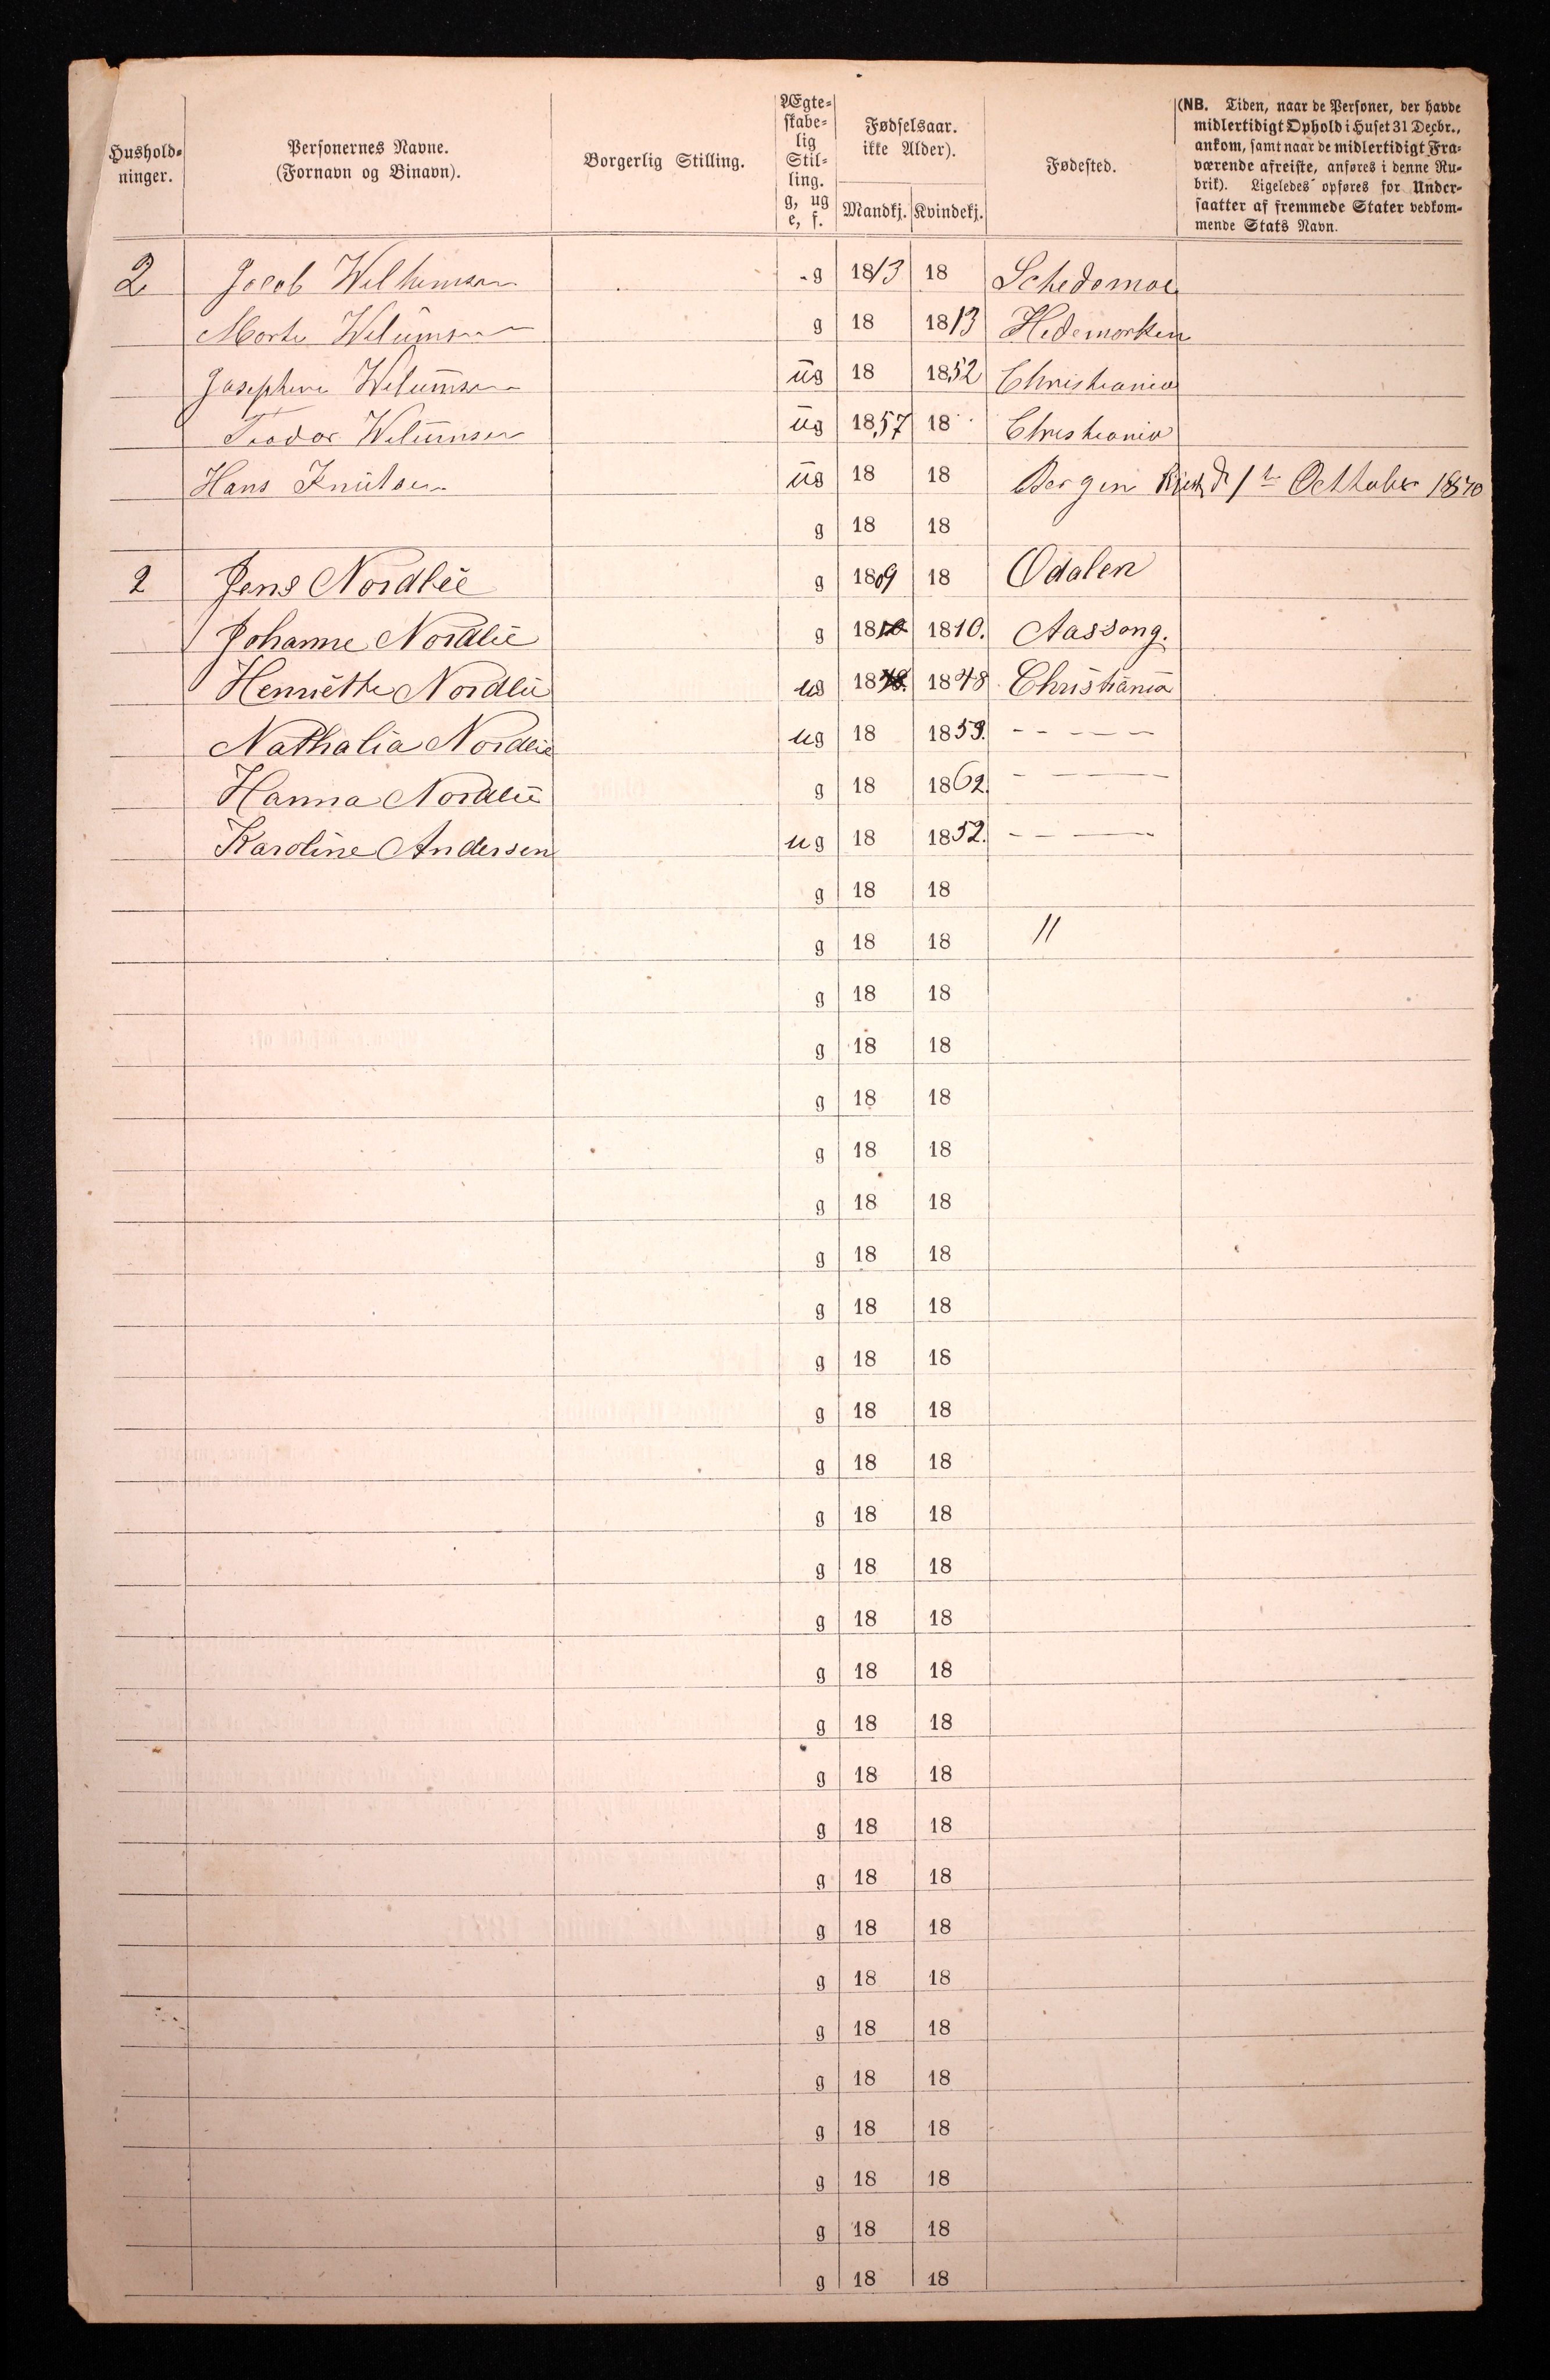 Hushold-
ninger.
Personernes Navne.
(Fornavn og Binavn).
Borgerlig Stilling.
Ægte-
skabe-
lig
Stil-
ling.
g, ug
e, f.
Fødselsaar.
ikke Alder).
Mandkj. Kvindekj.
Fødested.
(NB. Tiden, naar de Personer, der havde
midlertidigt Ophold i Huset 31 Decbr.,
ankom, samt naar de midlertidigt Fra-
værende afreiste, anføres i denne Ru-
brik). Ligeledes opføres for Under-
saatter af fremmede Stater vedkom-
mende Stats Navn.
2 Jacob Wilhemsen g 1813 18 Schedsmoe
Marte Wilumsen g 18 1813 Hedemarken
Josephine Wilumsen ug 18 1852 Christiania
Teodor Wilumsen ug 1857 18 Christiania
Hans Knutsen ug 18 18 Bergen 1te Octtober 1870
g 18 18
2 Jens Nordlie g 1809 18 Odalen
Johanne Nordlie g 1810 1810. Aassong.
Henriette Nordlie ug 1848. 1848 Christiania
Nathalia Nordlie ug 18 1859. - - - -
Hanna Nordlie g 18 1862. - - -
Karoline Andersen ug 18 1852. - - -
g 18 18
g 18 18 "
g 18 18
g 18 18
g 18 18
g 18 18
g 18 18
g 18 18
g 18 18
g 18 18
g 18 18
g 18 18
g 18 18
g 18 18
g 18 18
g 18 18
g 18 18
g 18 18
g 18 18
g 18 18
g 18 18
g 18 18
g 18 18
g 18 18
g 18 18
g 18 18
g 18 18
g 18 18